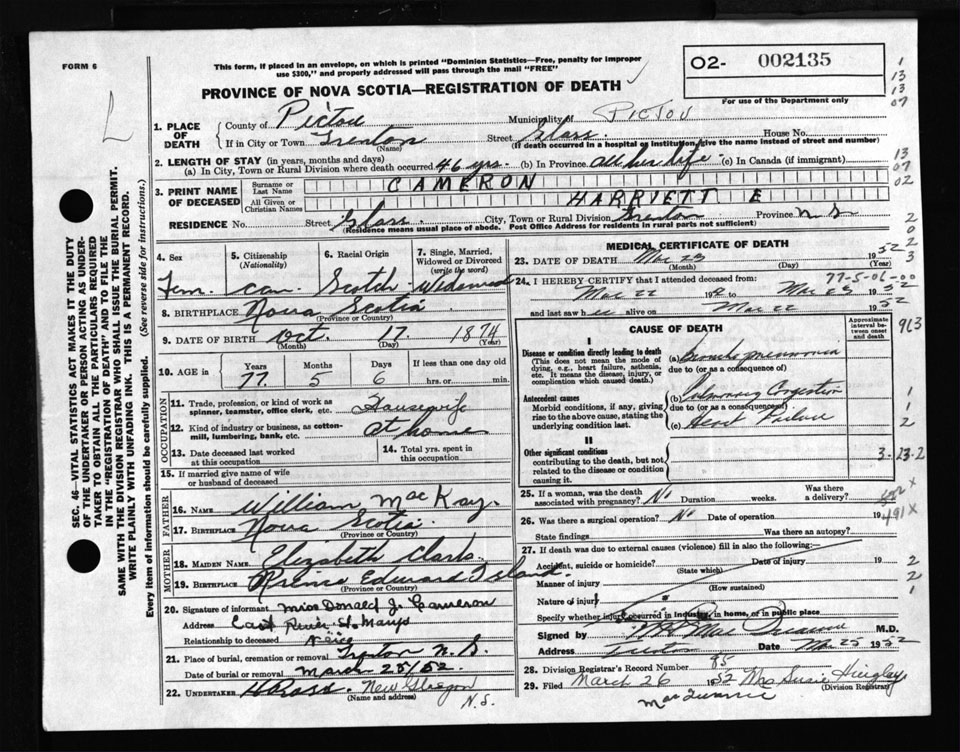 FORM 6
This form, if placed in an envelope, on which is printed "Dominion Statistics—Free, penalty for improper
use $300," and properly addressed will pass through the mail "FREE"
O2- 002135
For use of the Department only
PROVINCE OF NOVA SCOTIA—REGISTRATION OF DEATH
1. PLACE OF DEATH
County of Pictou Municipality of PICTOU
If in City or Town Trenton (Name) Street Glass. House No.
(If death occurred in a hospital or institution, give the name instead of street and number)
2. LENGTH OF STAY (in years, months and days)
(a) In City, Town or Rural Division where death occurred 46 yrs. (b) In Province all her life (c) In Canada (if immigrant)
3. PRINT NAME OF DECEASED
Surname or Last Name CAMERON
All Given or Christian Names HARRIETT E
RESIDENCE No. Street Glass. City, Town or Rural Division Trenton Province N S
(Residence means usual place of abode. Post Office Address for residents in rural parts not sufficient)
4. Sex Fem.
5. Citizenship (Nationality) Can.
6. Racial Origin Scotch
7. Single, Married, Widowed or Divorced (write the word) Widowed
8. BIRTHPLACE Nova Scotia (Province or Country)
9. DATE OF BIRTH Oct. (Month) 17. (Day) 1874 (Year)
10. AGE in Years 77. Months 5 Days 6 If less than one day old hrs. or min.
OCCUPATION
11. Trade, profession, or kind of work as spinner, teamster, office clerk, etc. Housewife
12. Kind of industry or business, as cotton-mill, lumbering, bank, etc. at home
13. Date deceased last worked at this occupation
14. Total yrs. spent in this occupation
15. If married give name of wife or husband of deceased
FATHER
16. NAME William MacKay.
17. BIRTHPLACE Nova Scotia. (Province or Country)
MOTHER
18. MAIDEN NAME Elizabeth Clark.
19. BIRTHPLACE Prince Edward Island. (Province or Country)
20. Signature of informant Donald J. Cameron
Address East River St. Marys
Relationship to deceased Niece
21. Place of burial, cremation or removal N.S.
Date of burial or removal March 25/52.
22. UNDERTAKER New Glasgow N.S. (Name and address)
MEDICAL CERTIFICATE OF DEATH
23. DATE OF DEATH Mar 23 1952 (Month) (Day) (Year)
77-5-06-00
24. I HEREBY CERTIFY that I attended deceased from:
Mar 22 19 Mar 23 1952
and last saw h alive on Mar 22 1952
CAUSE OF DEATH
Approximate interval between onset and death
I
Disease or condition directly leading to death
(This does not mean the mode of dying, e.g., heart failure, asthenia, etc. It means the disease, injury, or complication which caused death.)
(a) Broncho pneumonia
due to (or as a consequence of)
Antecedent causes
Morbid conditions, if any, giving rise to the above cause, stating the underlying condition last.
(b) Pulmonary Congestion
due to (or as a consequence of)
(c) Heart Failure
II
Other significant conditions
contributing to the death, but not related to the disease or condition causing it.
3-23-2
25. If a woman, was the death associated with pregnancy? No Duration weeks. Was there a delivery?
26. Was there a surgical operation? No Date of operation 19
State findings Was there an autopsy?
491X
27. If death was due to external causes (violence) fill in also the following:
Accident, suicide or homicide? (State which) Date of injury 19
Manner of injury (How sustained)
Nature of injury
Specify whether injury occurred in industry, in home, or in public place
Signed by M.D.
Address Trenton Date Mar 25 1952
28. Division Registrar's Record Number 85
29. Filed March 26 1952 Mrs Susie Hingley (Division Registrar)
SEC. 46—VITAL STATISTICS ACT MAKES IT THE DUTY
OF THE UNDERTAKER OR PERSON ACTING AS UNDER-
TAKER TO OBTAIN ALL THE PARTICULARS REQUIRED
IN THE "REGISTRATION OF DEATH" AND TO FILE THE
SAME WITH THE DIVISION REGISTRAR WHO SHALL ISSUE THE BURIAL PERMIT.
WRITE PLAINLY WITH UNFADING INK. THIS IS A PERMANENT RECORD.
Every item of information should be carefully supplied. (See reverse side for instructions.)